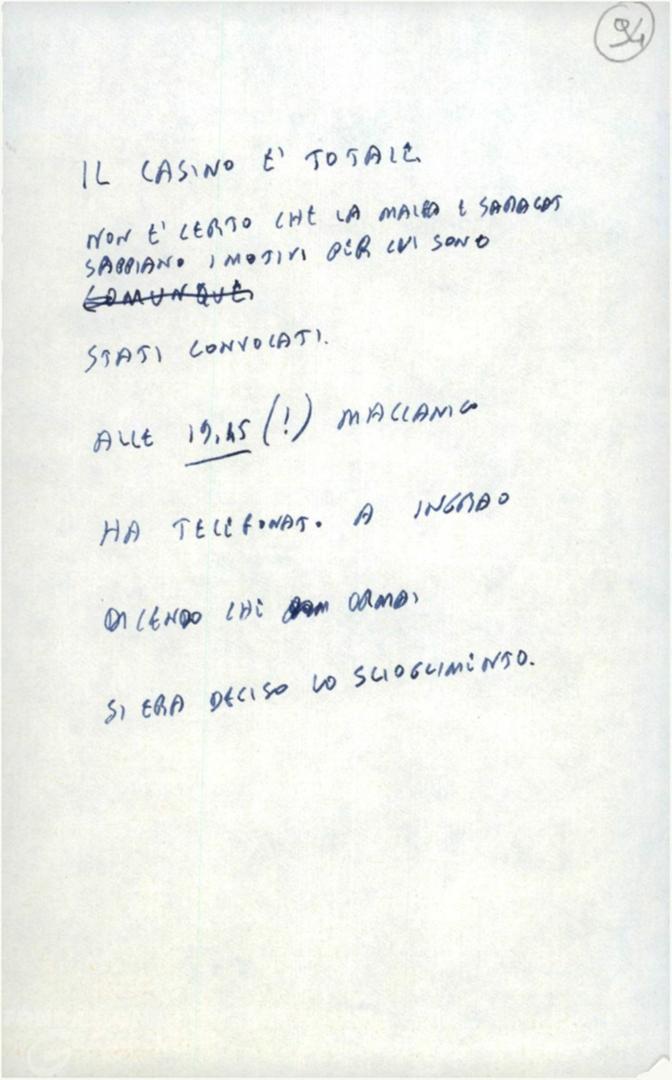 94
IL CASINO E' TOTALE
NON E' CERTO CHE LA MALFA E SARAGAT
SAPPIANO I MOTIVI PER CUI SONO
COMUNQUE
STATI CONVOCATI.
ALLE 19,45 (!) MACCANICO
HA TELEFONATO A INGRAO
DICENDO CHE ORMAI
SI ERA DECISO LO SCIOGLIMENTO.